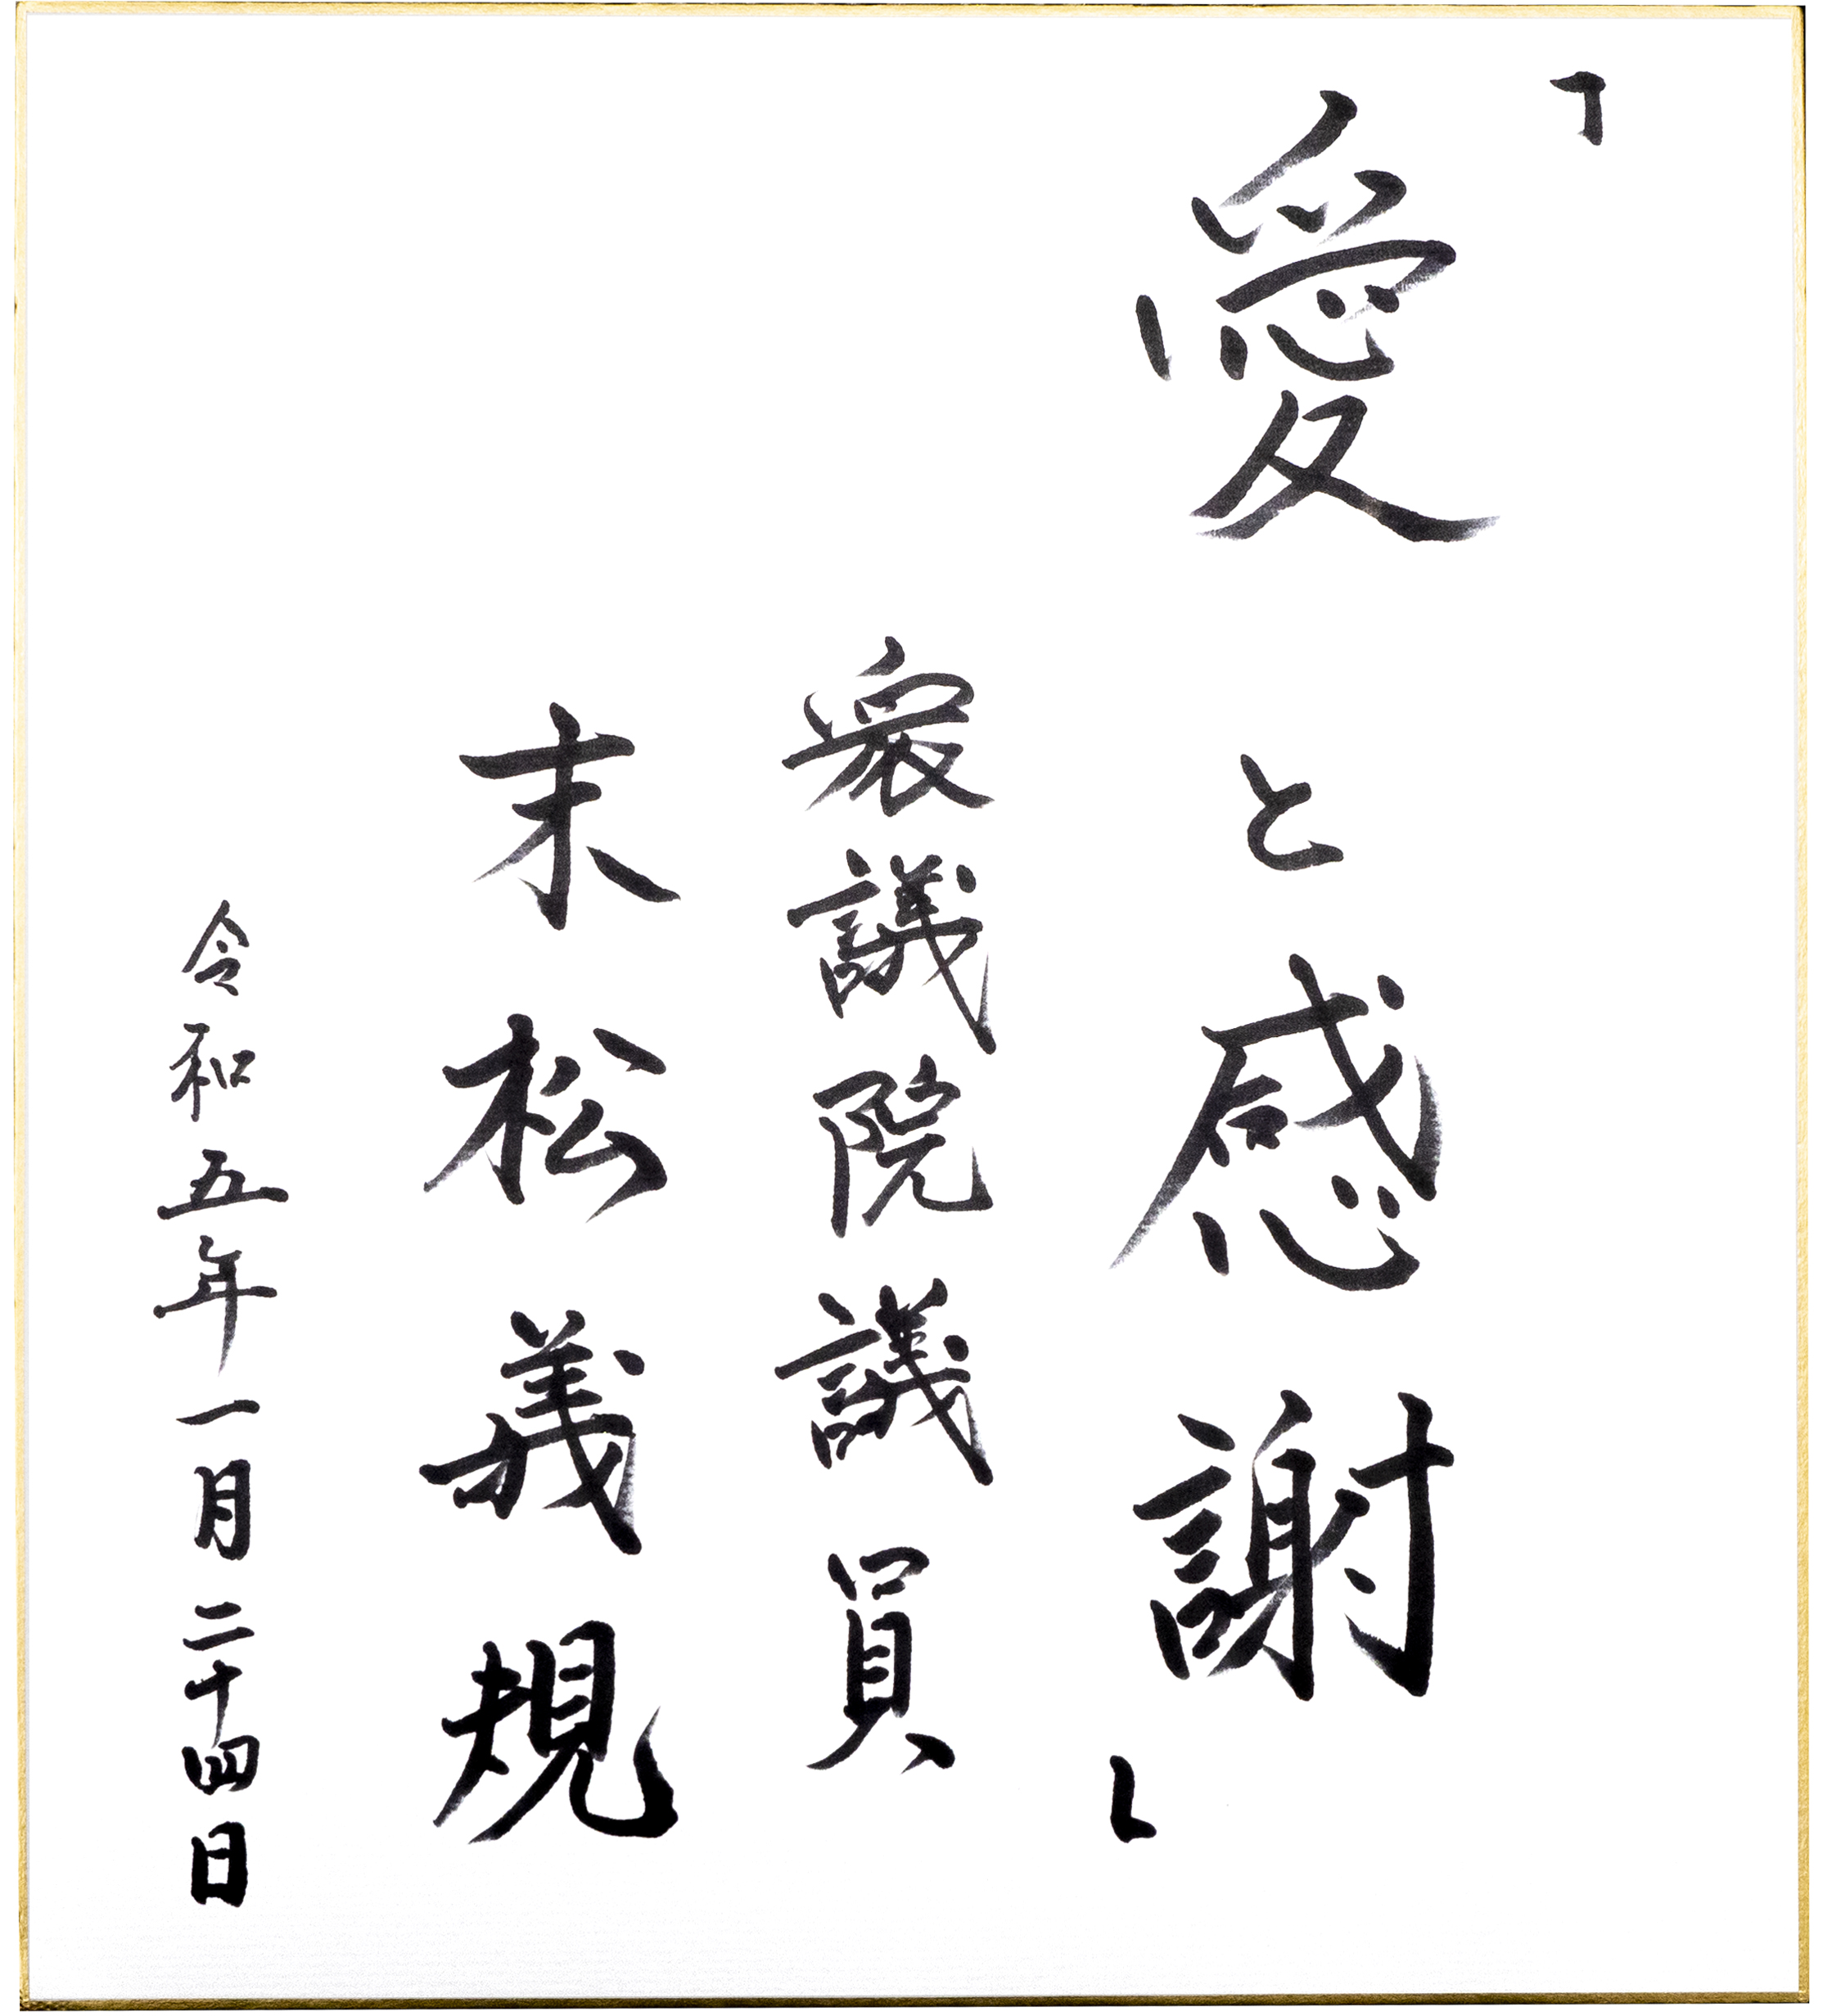 「愛と感謝」
衆議院議員
末松義規
令和五年一月二十四日